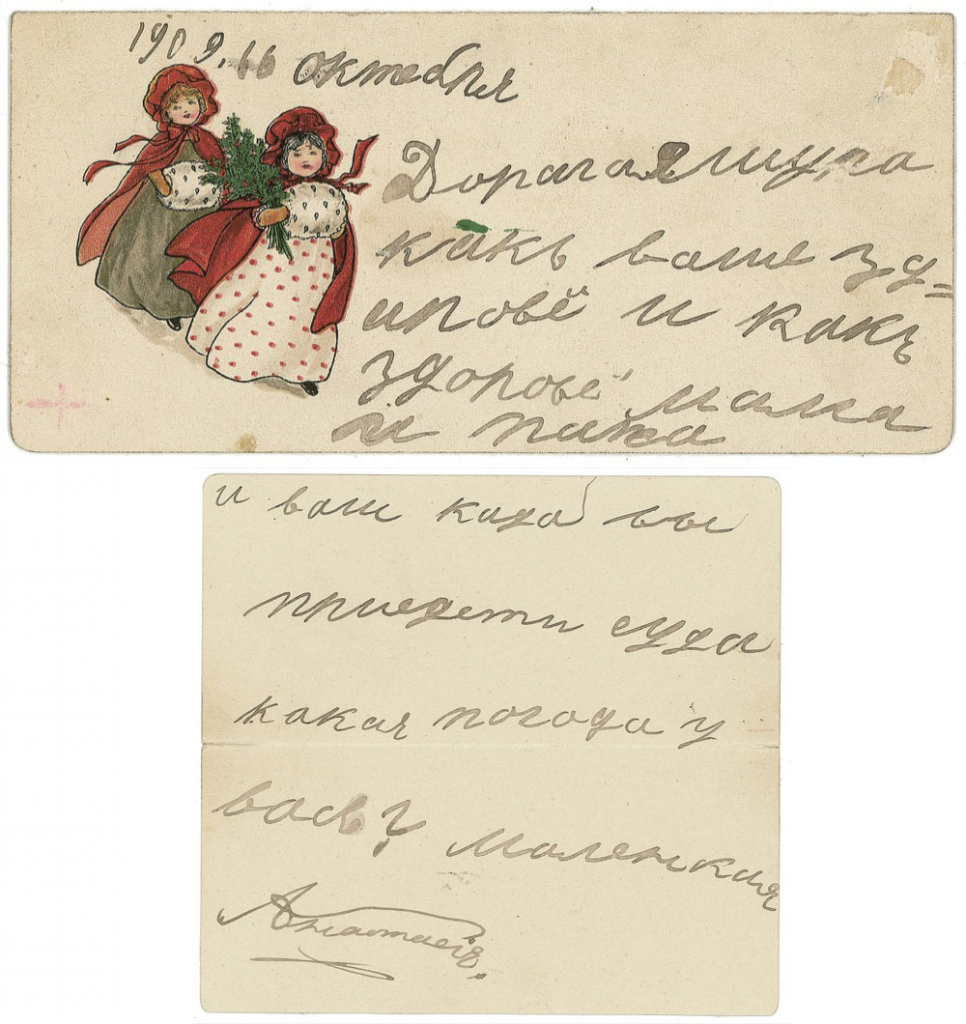 1909. 16 октября
Дорагая Шура
какъ ваше зд-
аровё и какъ
здоровё мама
и папа
и ваш када вы
приедети суда
какая погода у
васъ? Маленкая
Анастасія.